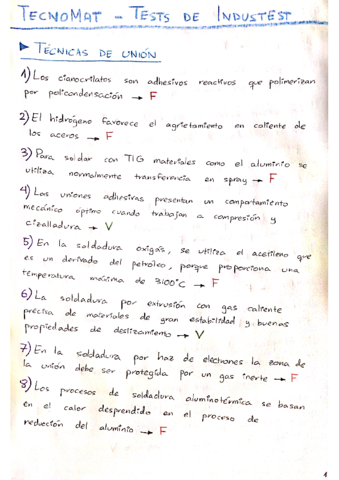 TECNOMAT - TESTS DE INDUSTEST
► TÉCNICAS DE UNIÓN
1) Los cianocrilatos son adhesivos reactivos que polimerizan
por policondensación → F
2) El hidrógeno favorece el agrietamiento en caliente de
los aceros → F
3) Para soldar con TIG materiales como el aluminio se
utiliza normalmente transferencia en spray → F
4) Las uniones adhesivas presentan un comportamiento
mecánico óptimo cuando trabajan a compresión y
cizalladura → V
5) En la soldadura oxigás, se utiliza el acetileno que
es un derivado del petroleo, porque proporciona una
temperatura máxima de 3100°C → F
6) La soldadura por extrusión con gas caliente
precisa de materiales de gran estabilidad y buenas
propiedades de deslizamiento → V
7) En la soldadura por haz de electrones la zona de
la unión debe ser protegida por un gas inerte → F
8) Los procesos de soldadura aluminotérmica se basan
en el calor desprendido en el proceso de
reducción del aluminio → F
1